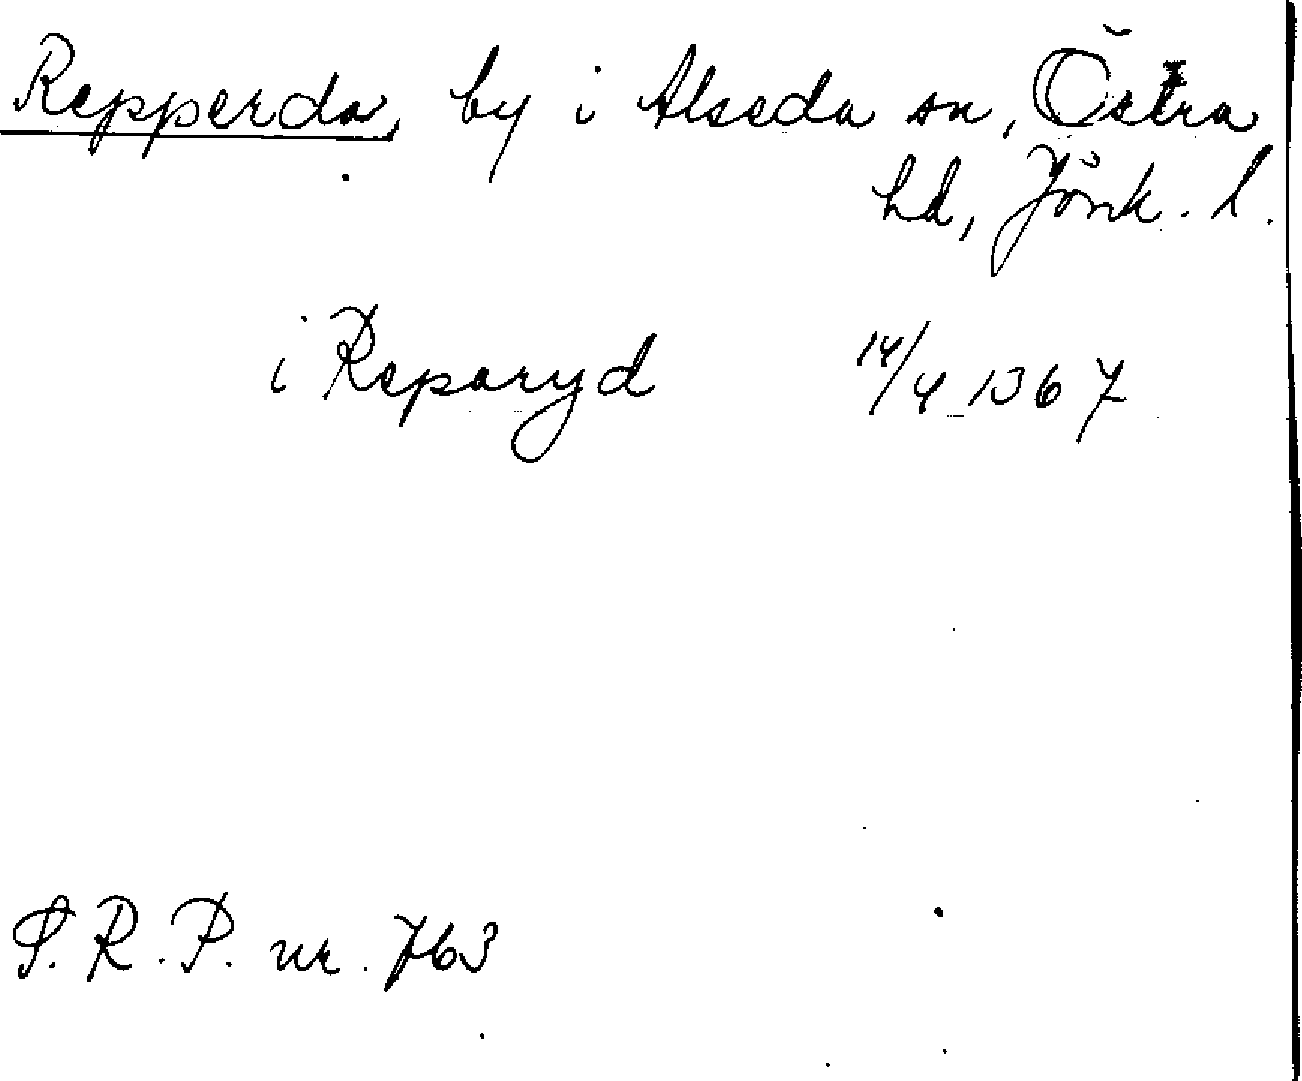 Repperda, by i Alseda sn, Östra
hd, Jönk. l.
i Reparyd 14/4 1367
S. R. P. nr. 763